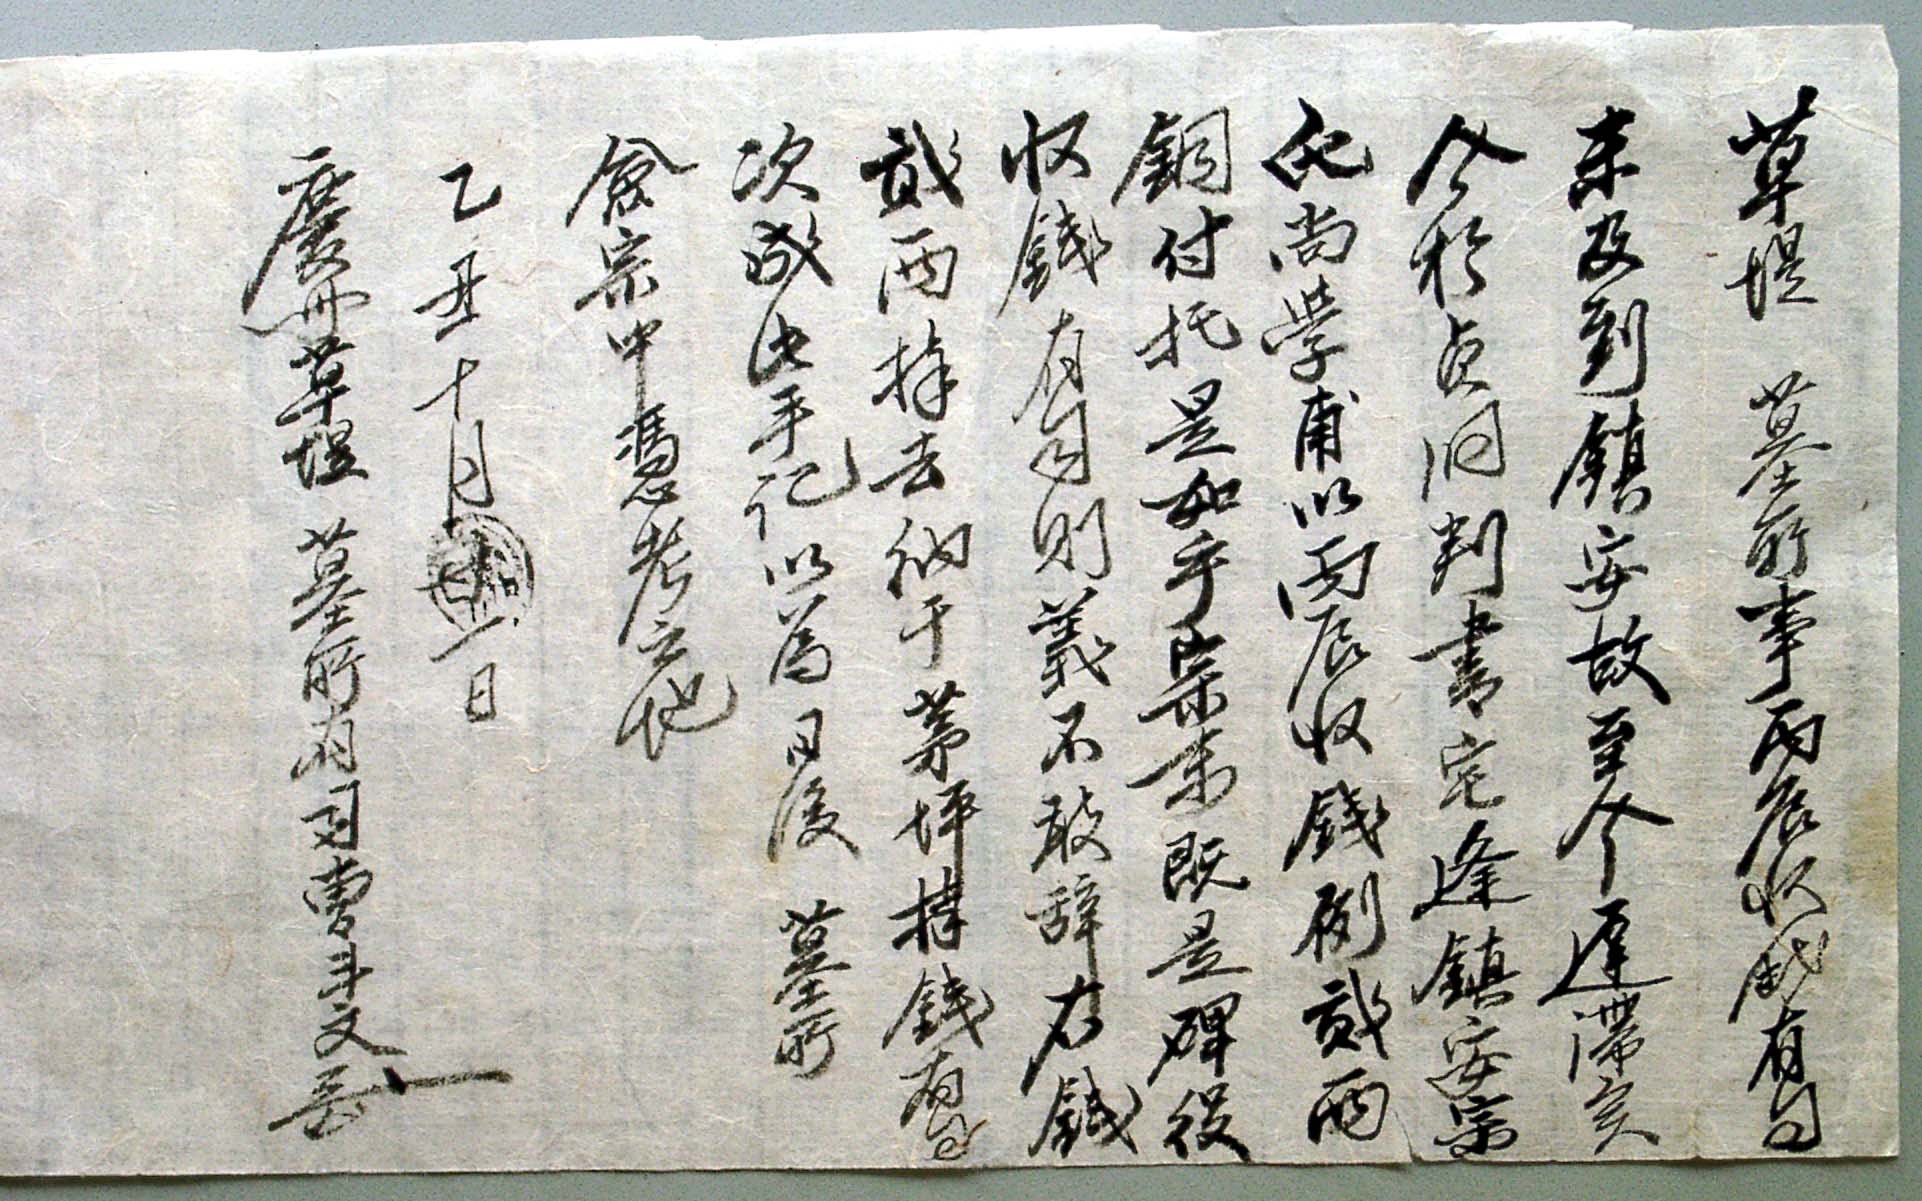 草堤 墓所事丙辰收錢有司
未及到鎮安故至今遲滯矣
今於貞洞判書宅逢鎮安宗
氏尚學甫以丙辰收錢例貳兩
銅付托是如乎渠亦既是碑役
收錢有司則義不敢辭右錢
貳兩捧去納于茅坪捧錢有司
次成此手記以為日後 墓所
僉宗中憑考之地
乙丑十月 一日
慶州草堤墓所有司曹斗文